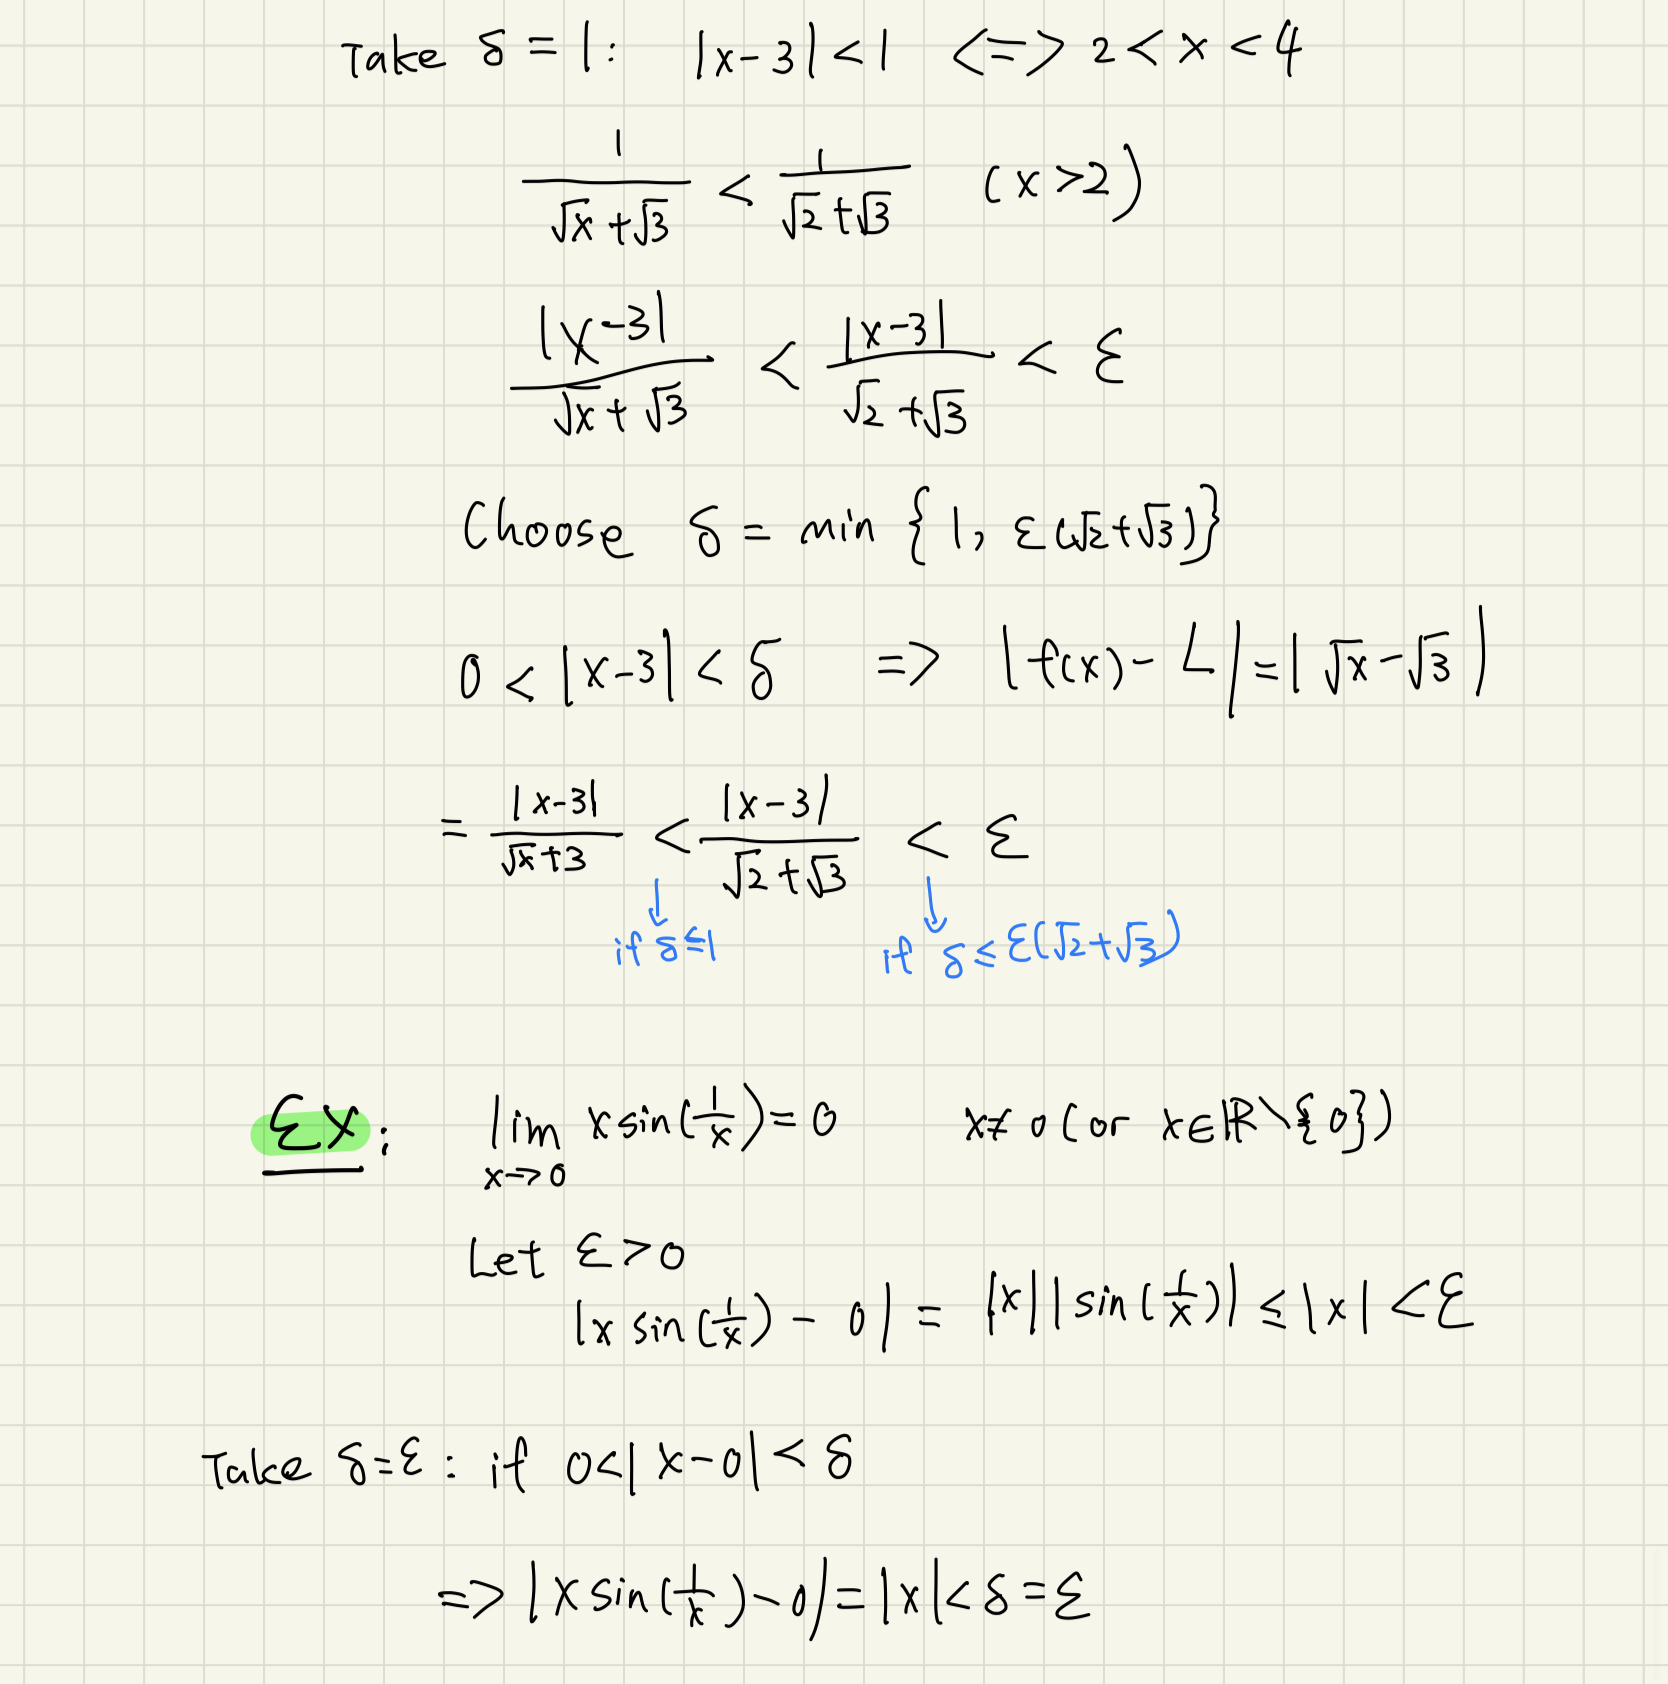 Take δ = 1: |x-3| < 1 <=> 2 < x < 4
1/(√x + √3) < 1/(√2 + √3) (x > 2)
|x-3|/(√x + √3) < |x-3|/(√2 + √3) < ε
Choose δ = min {1, ε(√2+√3)}
0 < |x-3| < δ => |f(x) - L| = |√x - √3|
= |x-3|/(√x + 3) < |x-3|/(√2 + √3) < ε
if δ ≤ 1 if δ ≤ ε(√2+√3)
Ex: lim x→0 x sin(1/x) = 0 x ≠ 0 (or x ∈ ℝ \ {0})
Let ε > 0
|x sin(1/x) - 0| = |x| |sin(1/x)| ≤ |x| < ε
Take δ = ε : if 0 < |x-0| < δ
=> |x sin(1/x) - 0| = |x| < δ = ε